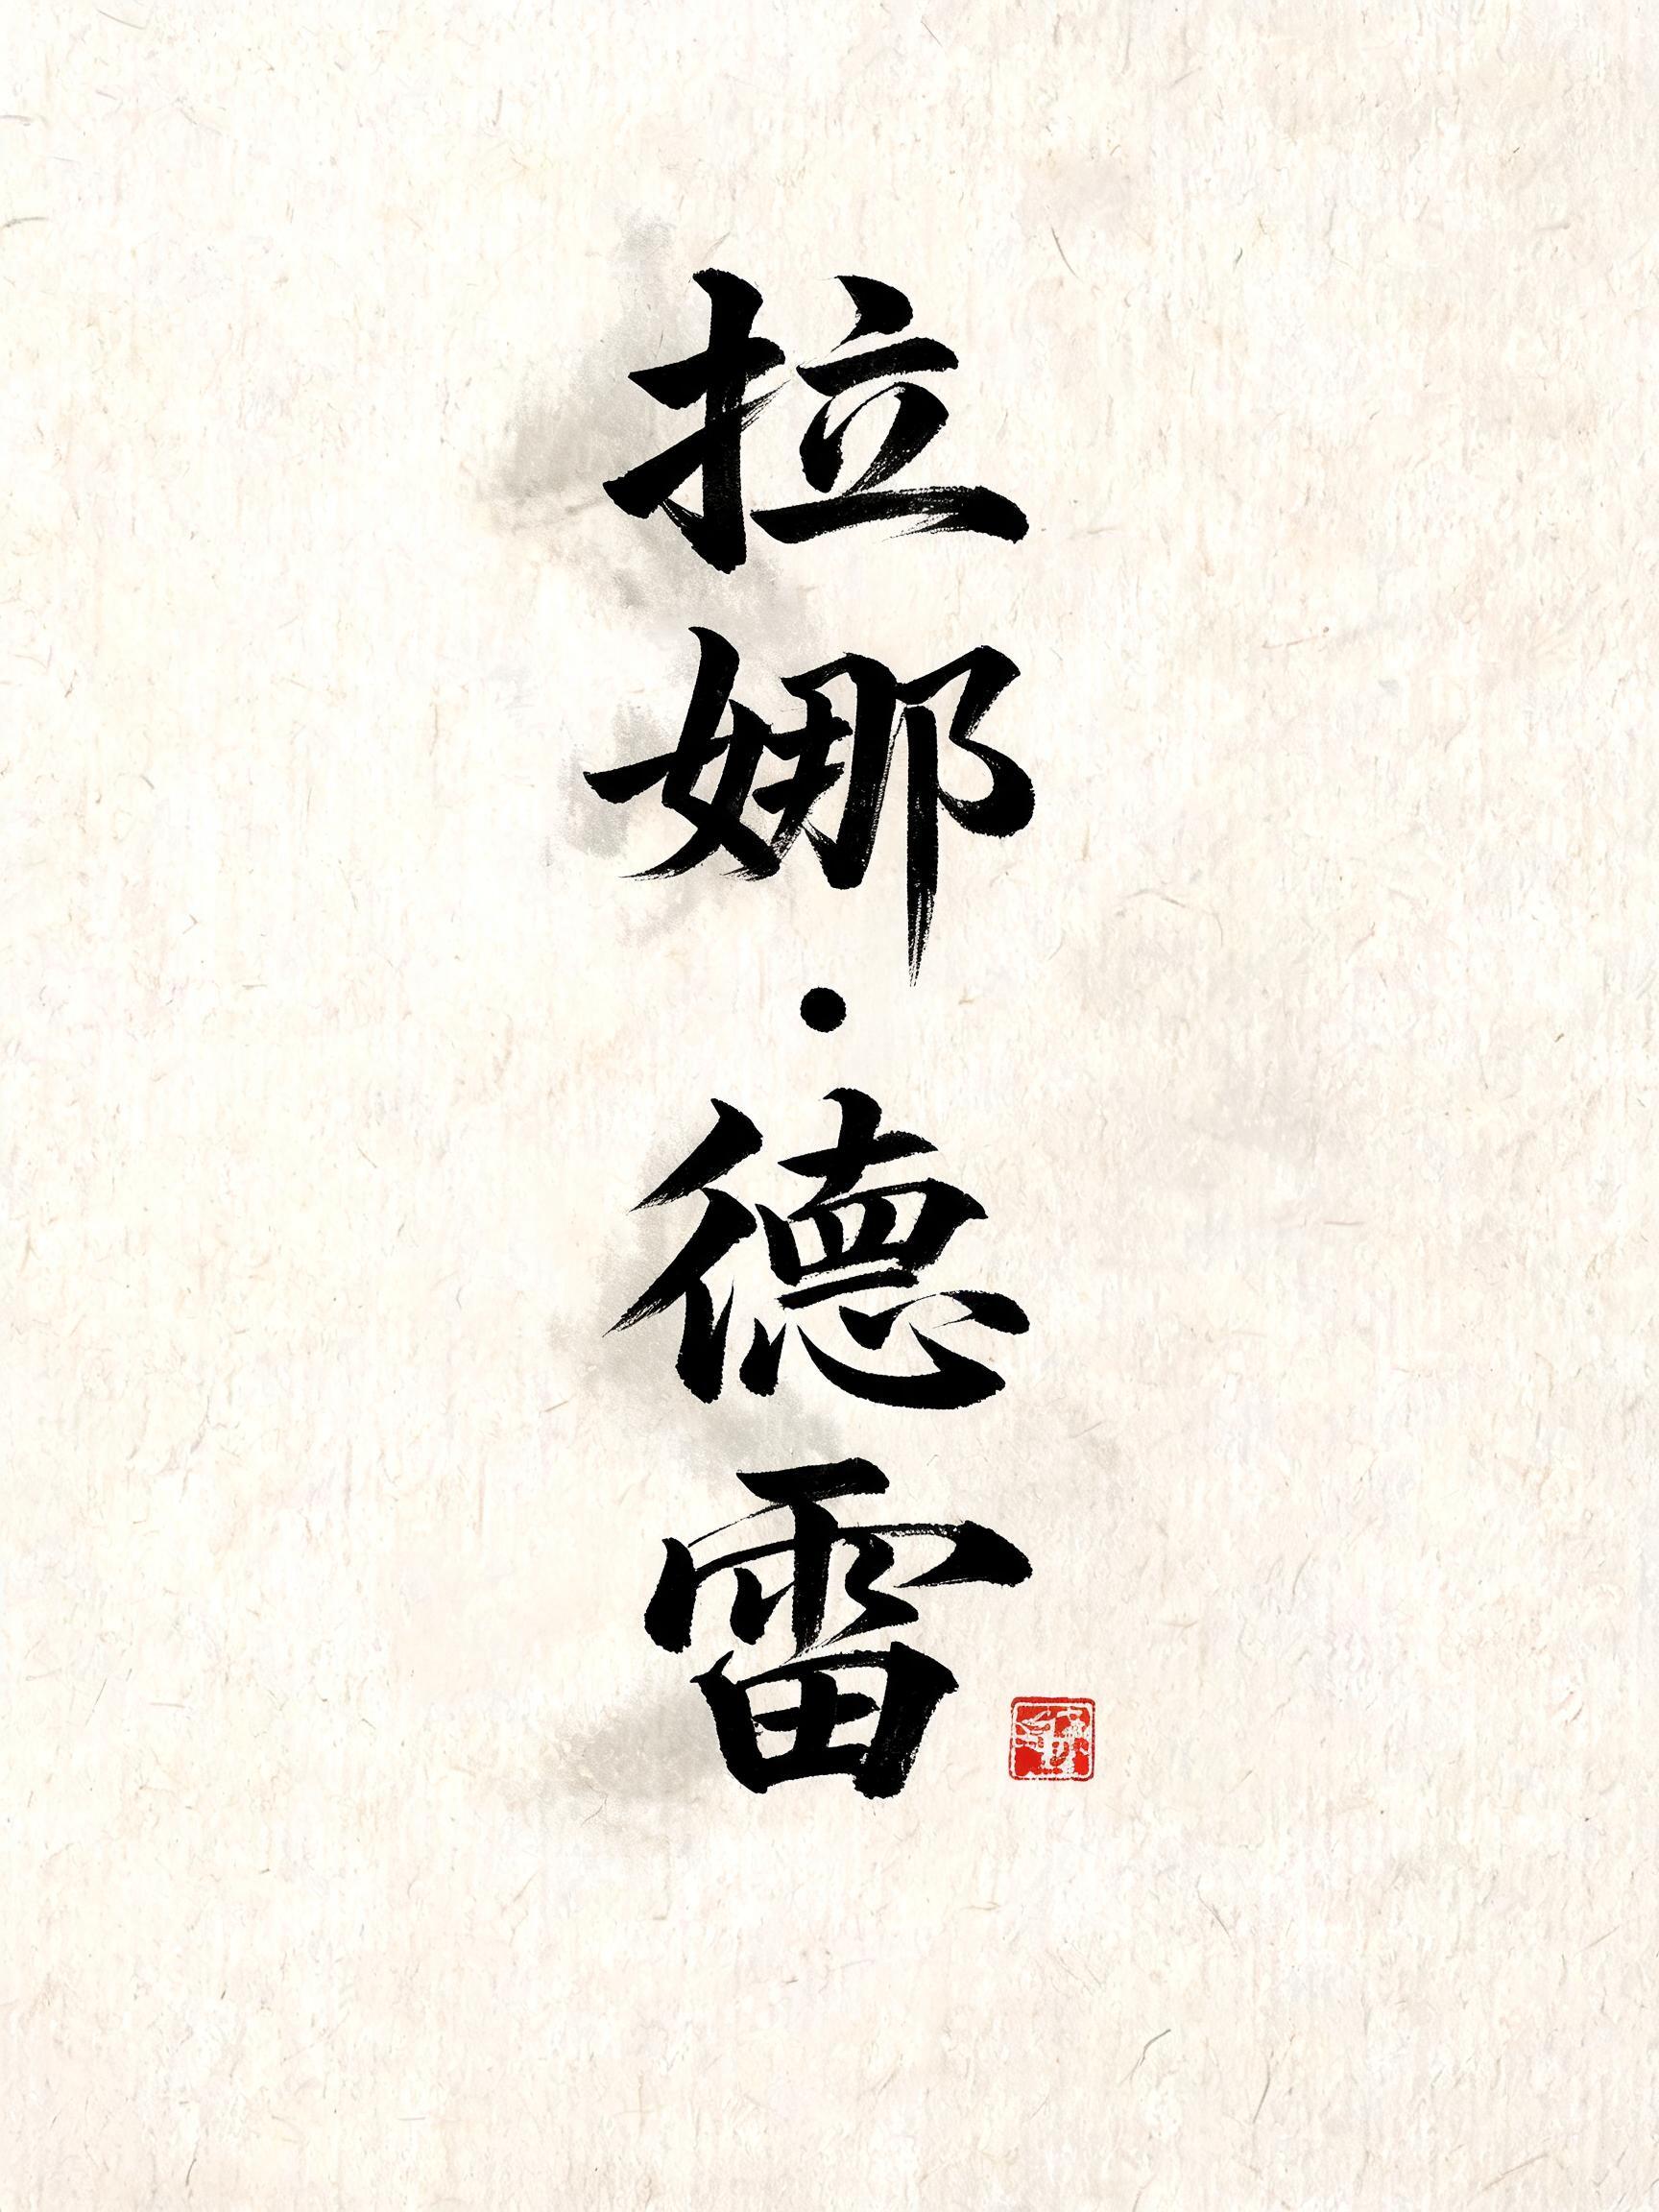 拉娜·德雷